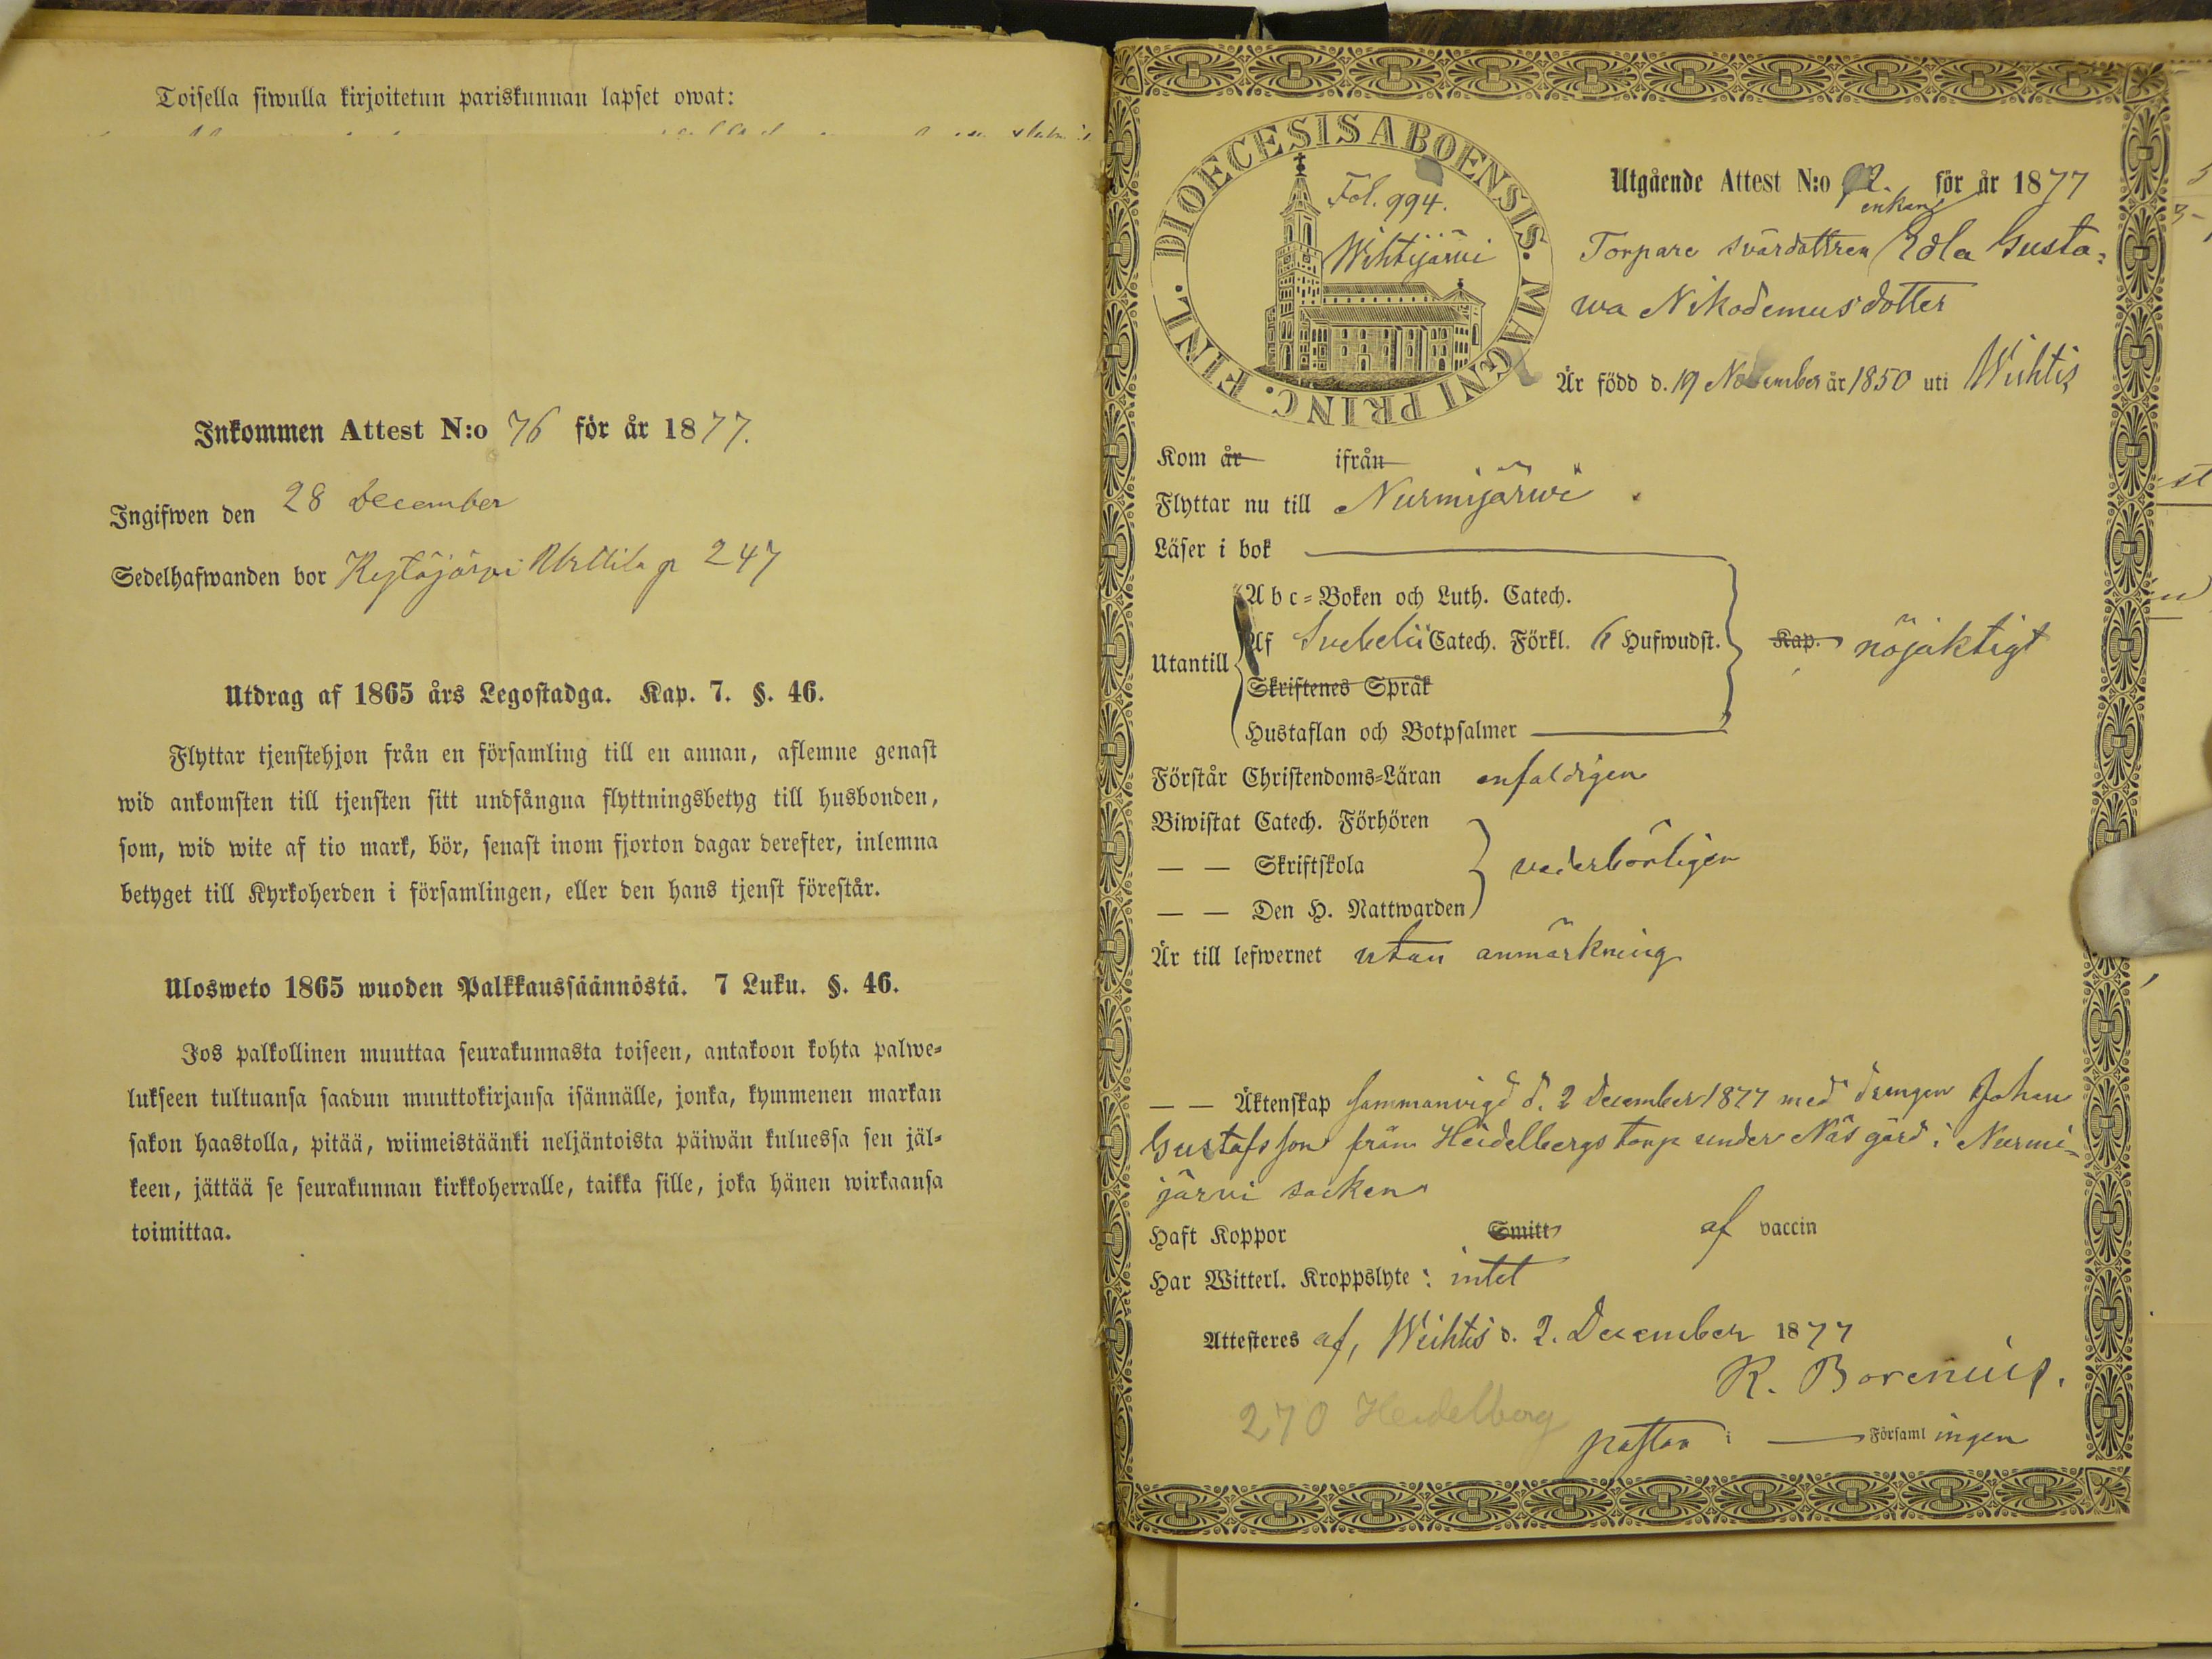 Toisella siwulla kirjoitetun pariskunnan lapset owat:
Inkommen Attest N:o 76 för år 1877.
Ingifwen den 28 December
Sedelhafwanden bor Kytäjärvi p 247
Utdrag af 1865 års Legostadga. Kap. 7. §. 46.
Flyttar tjenstehjon från en församling till en annan, aflemne genast
wid ankomsten till tjensten sitt undfångna flyttningsbetyg till husbonden,
som, wid wite af tio mark, bör, senast inom fjorton dagar derefter, inlemna
betyget till Kyrkoherden i församlingen, eller den hans tjenst förestår.
Ulosweto 1865 wuoden Palkkaussäännöstä. 7 Luku. §. 46.
Jos palkollinen muuttaa seurakunnasta toiseen, antakoon kohta palwe=
lukseen tultuansa saadun muuttokirjansa isännälle, jonka, kymmenen markan
sakon haastolla, pitää, wiimeistäänki neljäntoista päiwän kuluessa sen jäl=
keen, jättää se seurakunnan kirkkoherralle, taikka sille, joka hänen wirkaansa
toimittaa.
FINL. DIOECESIS ABOENSIS. MAGNI PRINC.
Fol. 994.
Wihtijärvi
Utgående Attest N:o 92. för år 1877
enkan
Torpare svärdottren Edla Gusta=
wa Nikodemusdotter
Är född d. 19 November år 1850 uti Wichtis
Kom år ifrån
Flyttar nu till Nurmijärwi
Läser i bok
Abc=Boken och Luth. Catech.
Utantill
Af Svebelii Catech. Förkl. 6 Hufwudst.
Kap. nöjaktigt
Skriftenes Språk
Hustaflan och Botpsalmer
Förstår Christendoms=Läran enfaldigen
Biwistat Catech. Förhören
— — Skriftskola vederbörligen
— — Den H. Nattwarden
Är till lefwernet utan anmärkning
— — Äktenskap sammanvigd d. 2 December 1877 med drengen Johan
Gustafsson från Heidelbergs torp under Näs gård i Nurmi=
järvi socken
Haft Koppor Smitt af vaccin
Har Witterl. Kroppslyte: intet
Attesteres af, Wichtis d. 2. December 1877
R. Borenius.
270 Heidelberg
pastor i — Församlingen